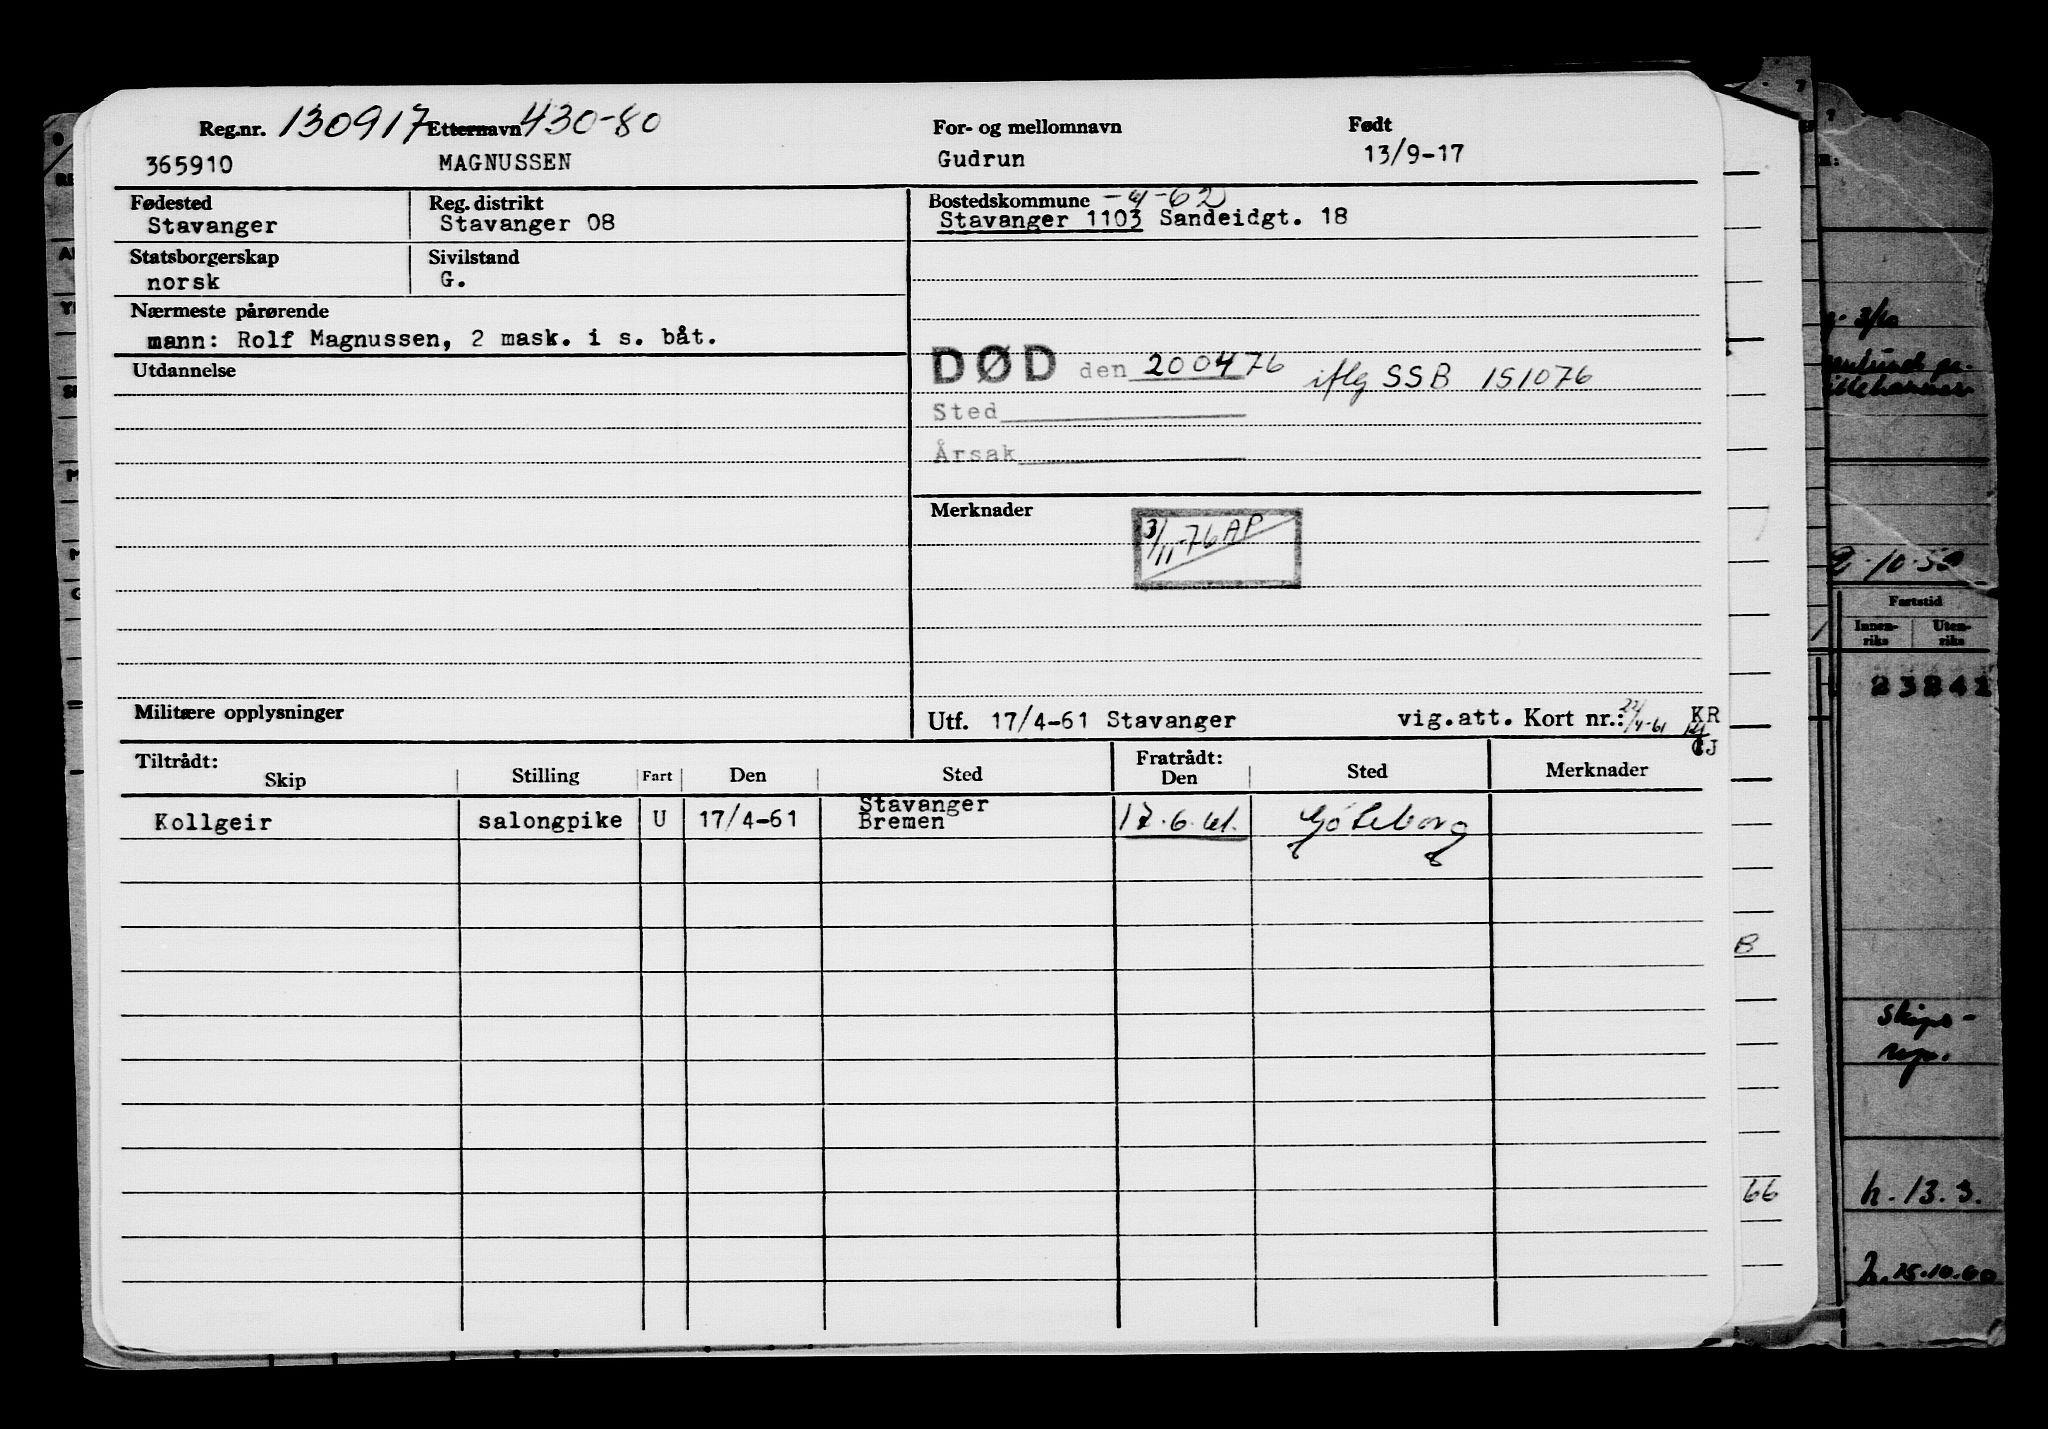 Reg.nr. 130917 Etternavn 430-80 For- og mellomnavn Født
365910 MAGNUSSEN Gudrun 13/9-17
Fødested Reg. distrikt Bostedskommune -4-62
Stavanger Stavanger 08 Stavanger 1103 Sandeidgt. 18
Statsborgerskap Sivilstand
norsk G.
Nærmeste pårørende
mann: Rolf Magnussen, 2 mask. i s. båt.
Utdannelse
DØD den 200476 iflg SSB 151076
Sted
Årsak
Merknader
3/11-76 AP
Militære opplysninger
Utf. 17/4-61 Stavanger vig.att. Kort nr.: 22/4-61 KR
GJ
Tiltrådt: Fratrådt:
Skip Stilling Fart Den Sted Den Sted Merknader
Stavanger
Kollgeir salongpike U 17/4-61 Bremen 17.6.61. Göteborg
B
66
g. 3/10
2-10-50
Fartstid
Innen-riks Uten-riks
Skips-
h. 13. 3.
h. 15.10.60